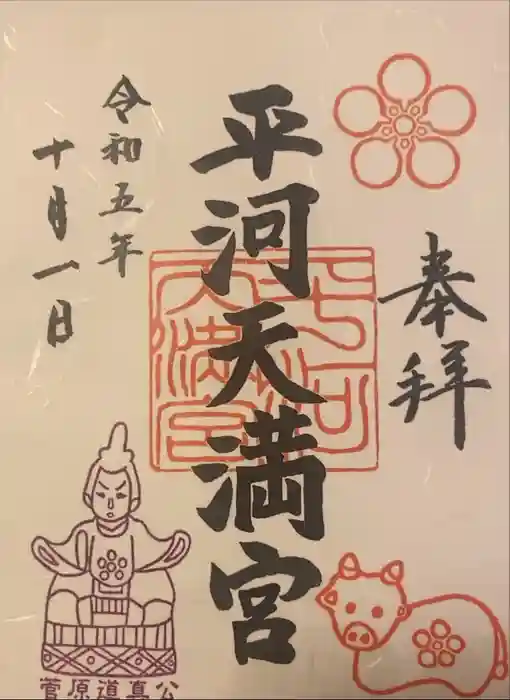 奉拝
平河天満宮
平河
天満宮
令和五年
十月一日
菅原道真公